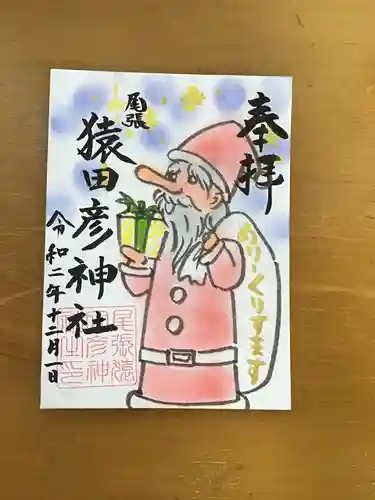 奉拝
めりーくりすます
尾張
猿田彦神社
令和二年十二月一日
尾張猿
彦神